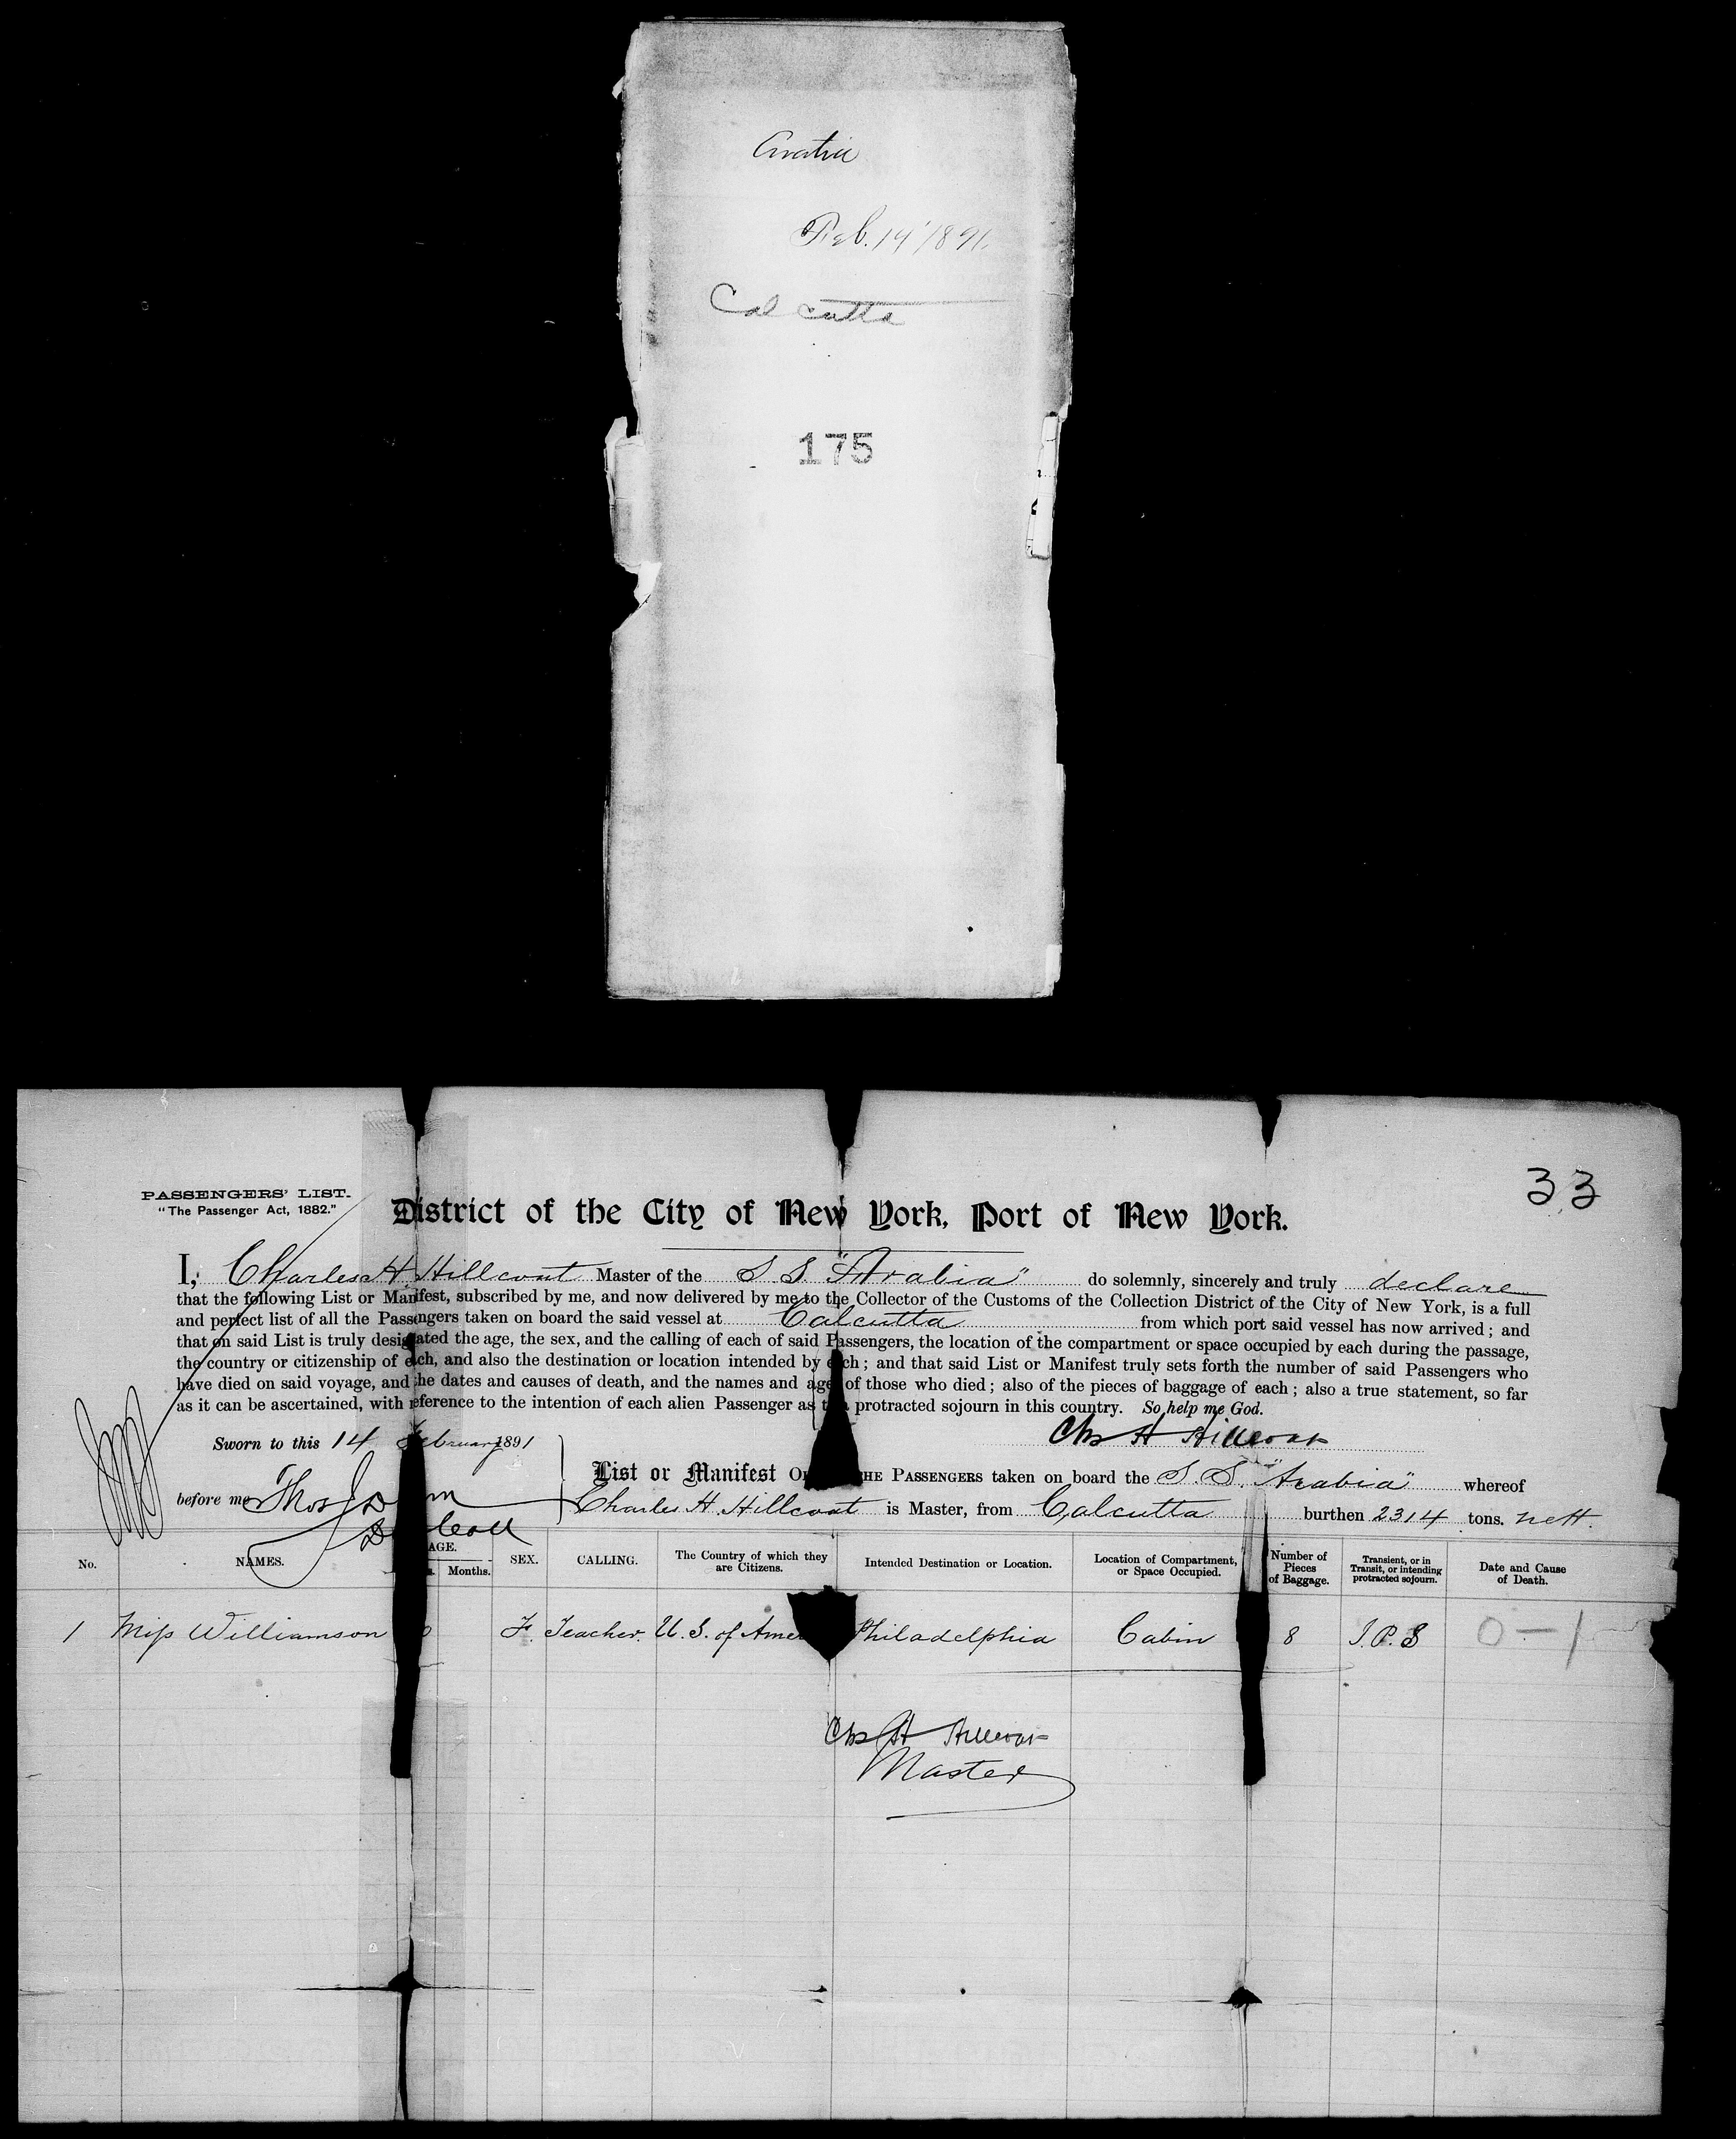 Arabia
Feb. 14 1891
Calcutta
175
33
PASSENGERS' LIST.
"The Passenger Act, 1882."
District of the City of New York, Port of New York.
I, Charles H. Hillcoat Master of the S.S. "Arabia" do solemnly, sincerely and truly declare
that the following List or Manifest, subscribed by me, and now delivered by me to the Collector of the Customs of the Collection District of the City of New York, is a full
and perfect list of all the Passengers taken on board the said vessel at Calcutta from which port said vessel has now arrived; and
that on said List is truly designated the age, the sex, and the calling of each of said Passengers, the location of the compartment or space occupied by each during the passage,
the country or citizenship of each, and also the destination or location intended by each; and that said List or Manifest truly sets forth the number of said Passengers who
have died on said voyage, and the dates and causes of death, and the names and ages of those who died; also of the pieces of baggage of each; also a true statement, so far
as it can be ascertained, with reference to the intention of each alien Passenger as to a protracted sojourn in this country. So help me God.
Sworn to this 14 February 1891
Chs H Hillcoat
before me Thos J D
List or Manifest OF THE PASSENGERS taken on board the S.S. "Arabia" whereof
Charles H. Hillcoat is Master, from Calcutta burthen 2314 tons. nett.
No. NAMES. AGE. Months. SEX. CALLING. The Country of which they are Citizens. Intended Destination or Location. Location of Compartment, or Space Occupied. Number of Pieces of Baggage. Transient, or in Transit, or intending protracted sojourn. Date and Cause of Death.
1 Miss Williamson F. Teacher. U.S. of Ame Philadelphia Cabin 8 I.P.S 0-1
Chs H Hillcoat
Master